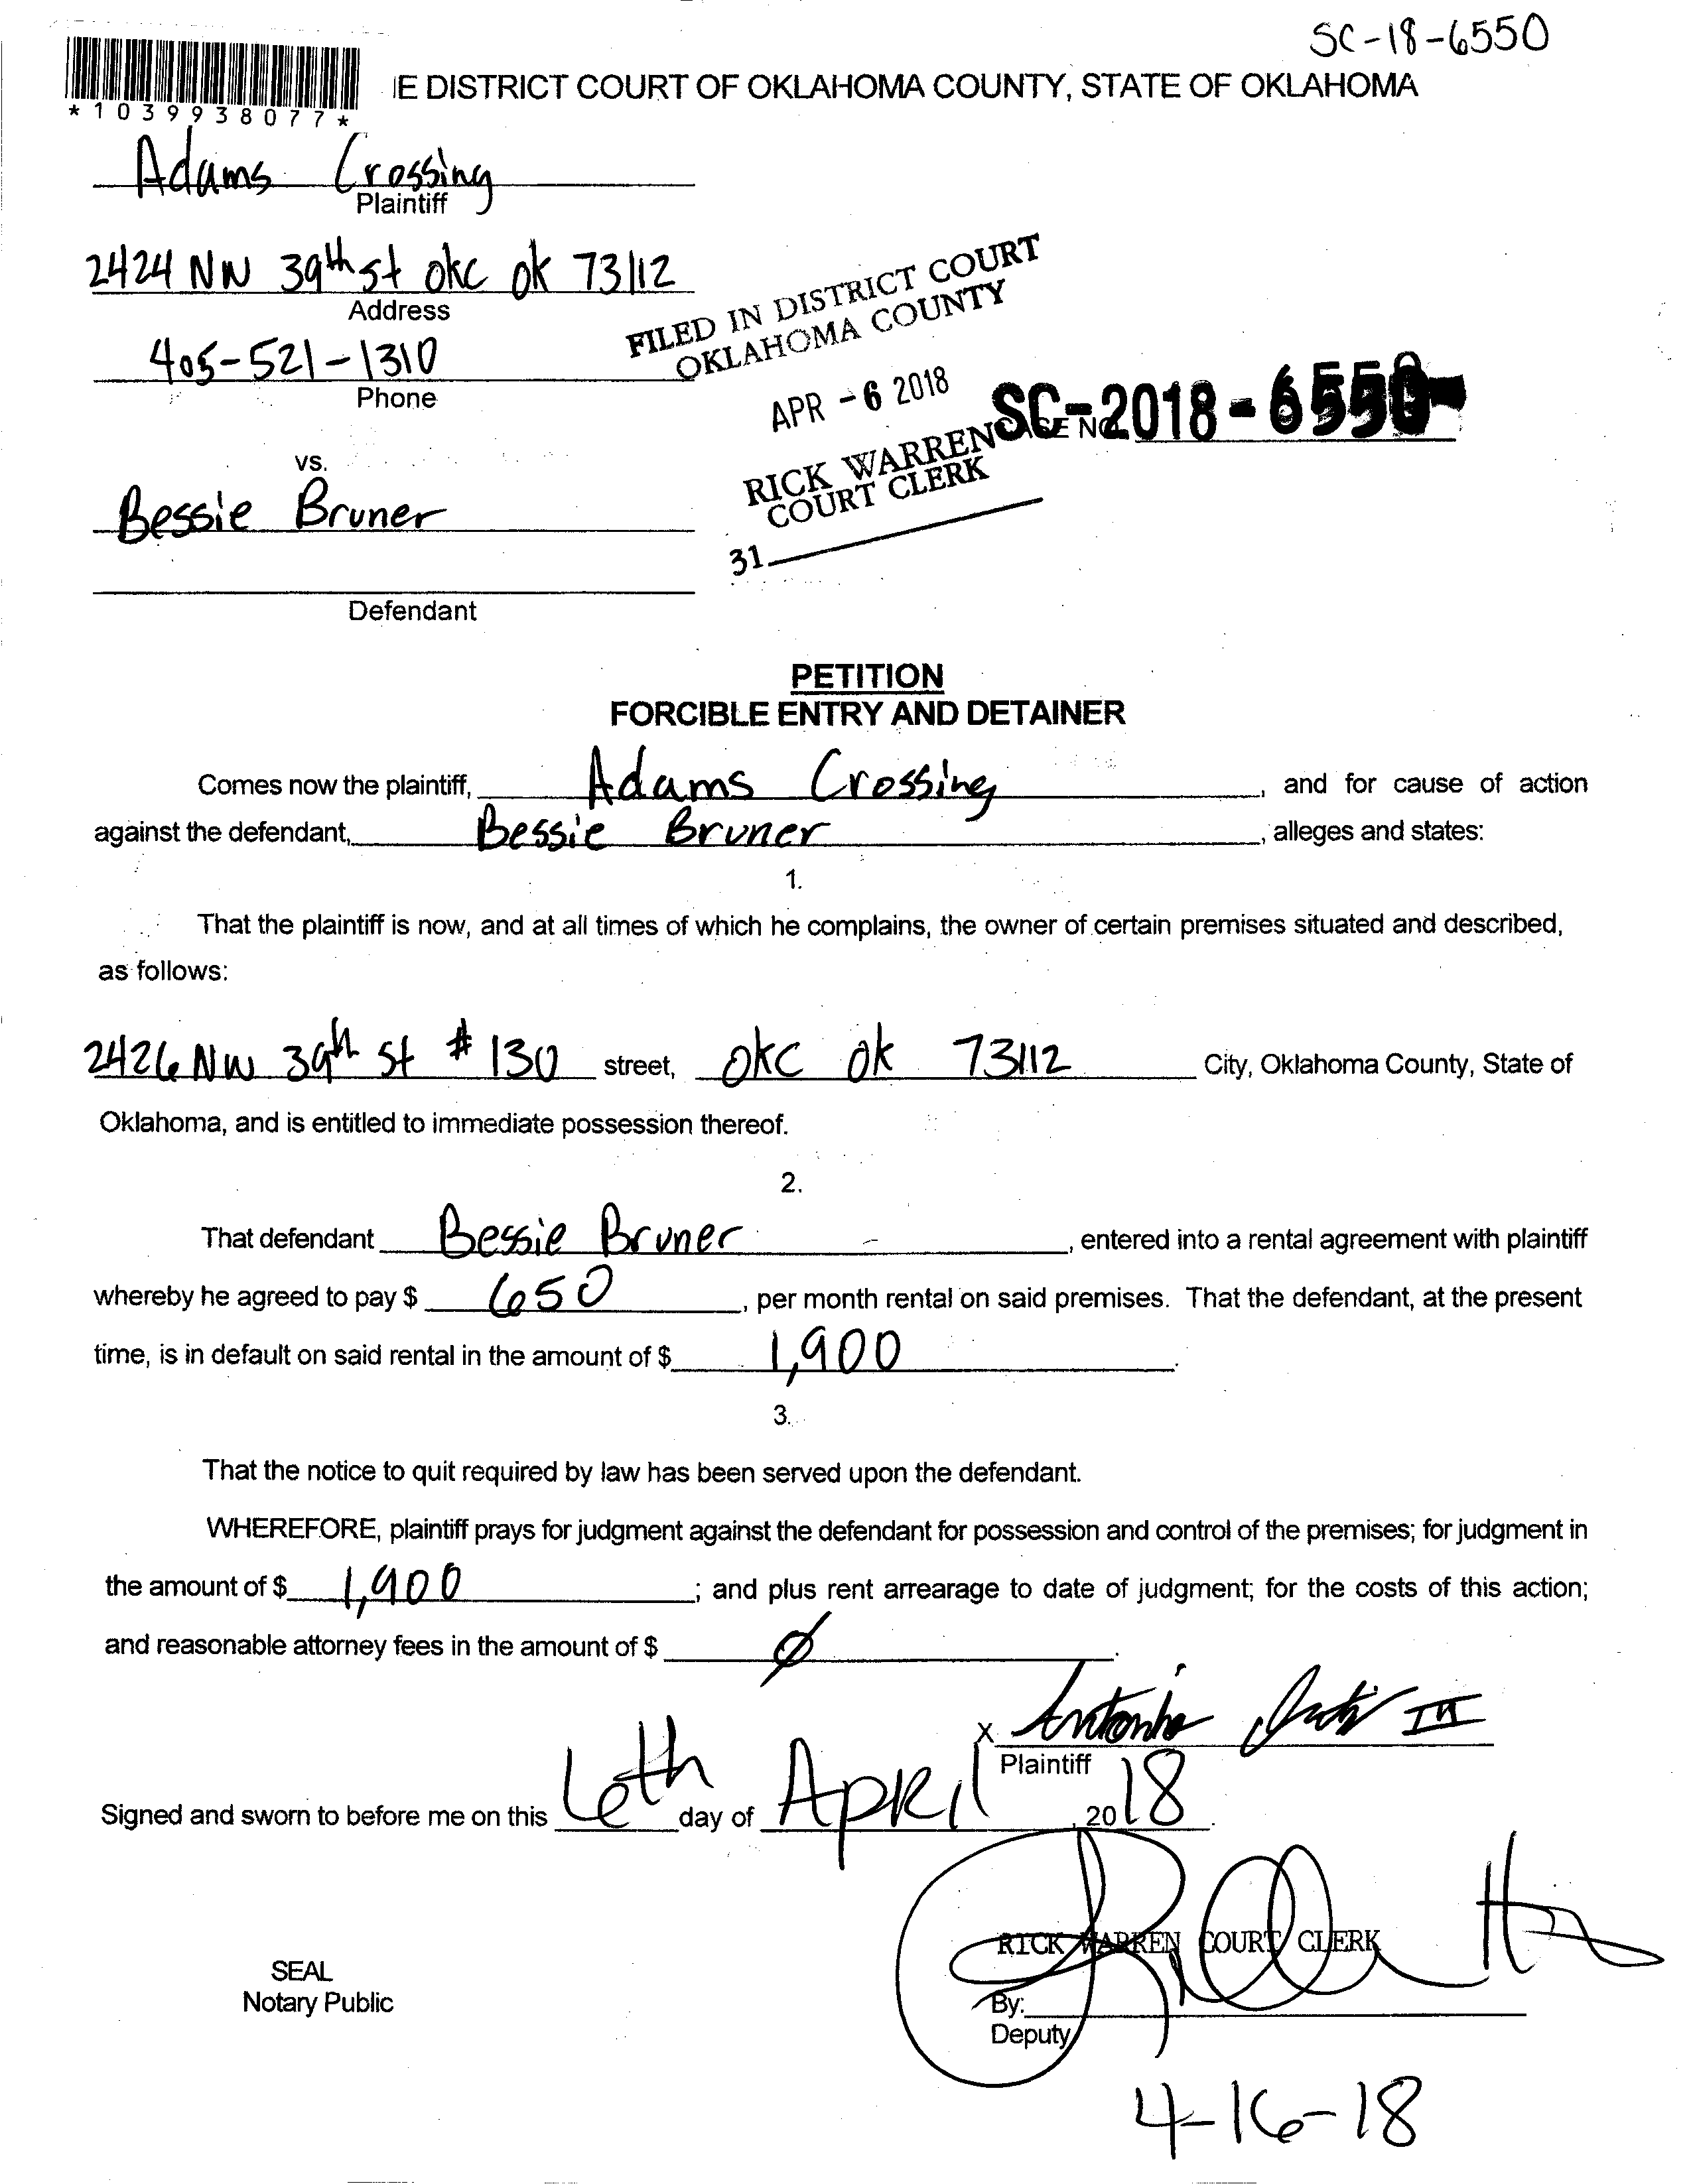 SC-18-6550
IE DISTRICT COURT OF OKLAHOMA COUNTY, STATE OF OKLAHOMA
*1039938077*
Adams Crossing
Plaintiff
2424 NW 39th st okc ok 73112
Address
405-521-1310
Phone
FILED IN DISTRICT COURT
OKLAHOMA COUNTY
APR -6 2018
RICK WARREN
COURT CLERK
31
SC-2018-6550
vs.
Bessie Bruner
Defendant
PETITION
FORCIBLE ENTRY AND DETAINER
Comes now the plaintiff, Adams Crossing, and for cause of action
against the defendant, Bessie Bruner, alleges and states:
1.
That the plaintiff is now, and at all times of which he complains, the owner of certain premises situated and described,
as follows:
2426 NW 39th St # 130 street, okc ok 73112 City, Oklahoma County, State of
Oklahoma, and is entitled to immediate possession thereof.
2.
That defendant Bessie Bruner, entered into a rental agreement with plaintiff
whereby he agreed to pay $ 650, per month rental on said premises. That the defendant, at the present
time, is in default on said rental in the amount of $ 1,900.
3.
That the notice to quit required by law has been served upon the defendant.
WHEREFORE, plaintiff prays for judgment against the defendant for possession and control of the premises; for judgment in
the amount of $ 1,900; and plus rent arrearage to date of judgment; for the costs of this action;
and reasonable attorney fees in the amount of $ Ø.
X Antonio III
Plaintiff
Signed and sworn to before me on this 6th day of April, 2018.
RICK WARREN COURT CLERK
SEAL
Notary Public
By:
Deputy
4-16-18